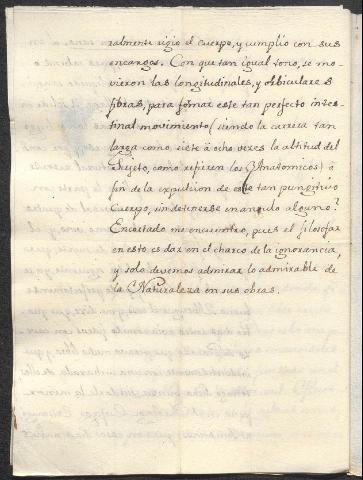 ralmente rigió el cuerpo, y cumplio con sus
encargos. Con que tan igual tono, se mo-
vieron las longitudinales, y orbiculares
fibras, para formar este tan perfecto intes-
tinal movimiento (siendo la carrera tan
larga como siete à ocho veces la altitud del
Sujeto, como refieren los Anatomicos) á
fin de la expulcion de este tan pungitivo
Cuerpo, sin detenerse en angulo alguno?
Encortado me encuentro, pues el filosofar
en esto es dar en el charco de la ignorancia,
y solo devemos admirar lo admirable de
la Naturaleza en sus obras.